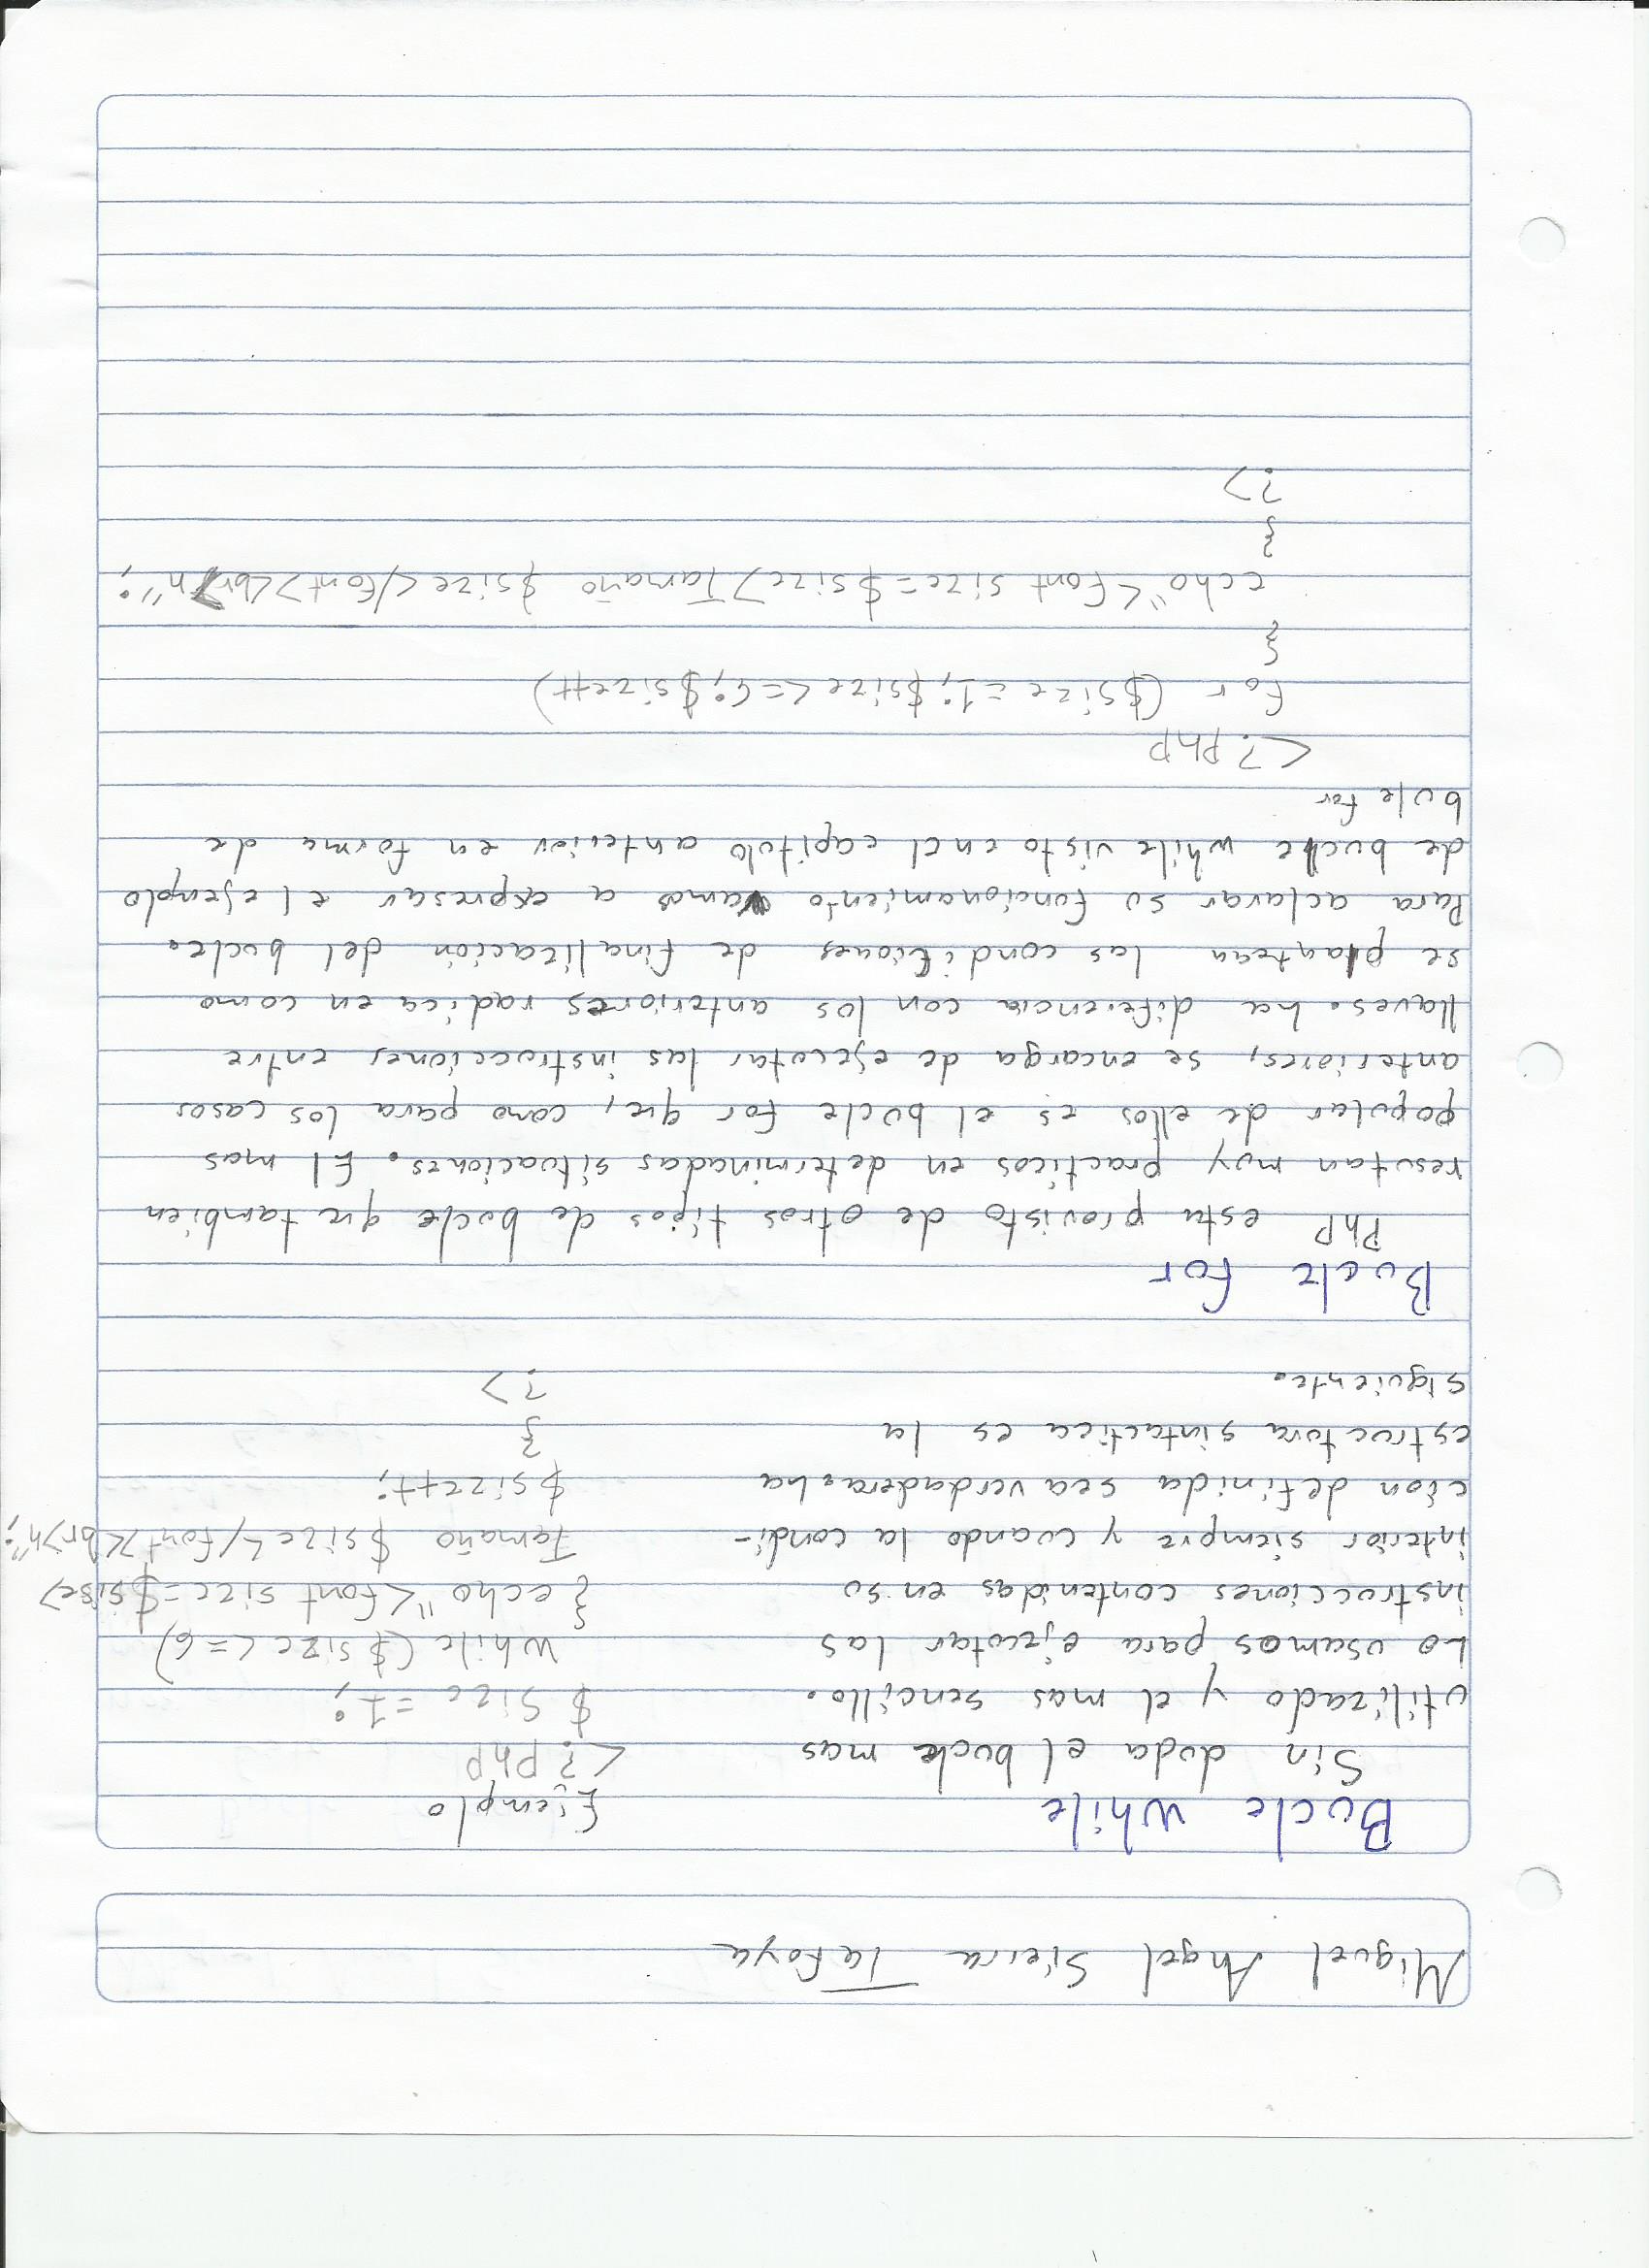 Miguel Angel Sierra Tafoya
Bucle While
Sin duda el bucle mas
utilizado y el mas sencillo.
Lo usamos para ejecutar las
instrucciones contenidas en su
interior siempre y cuando la condi-
cion definida sea verdadera. La
estructura sintactica es la
siguiente.
Ejemplo
<? PhP
$ Size = 1;
While ($ size <= 6)
{ echo "<font size = $size>
Tamaño $size</font><br>n";
$size++;
}
?>
Bucle for
PhP esta provisto de otros tipos de bucle que tambien
resutan muy practicos en determinadas situaciones. El mas
popular de ellos es el bucle for que, como para los casos
anteriores, se encarga de ejecutar las instrucciones entre
llaves. La diferencia con los anteriores radica en como
se plantean las condiciones de finalización del bucle.
Para aclarar su funcionamiento vamos a expresar el ejemplo
de bucle while visto en el capitulo anterior en forma de
bule for
<? PhP
for ($size = 1; $size <= 6; $size++)
{
echo "<font size = $size>Tamaño $size</font><br>n";
}
?>